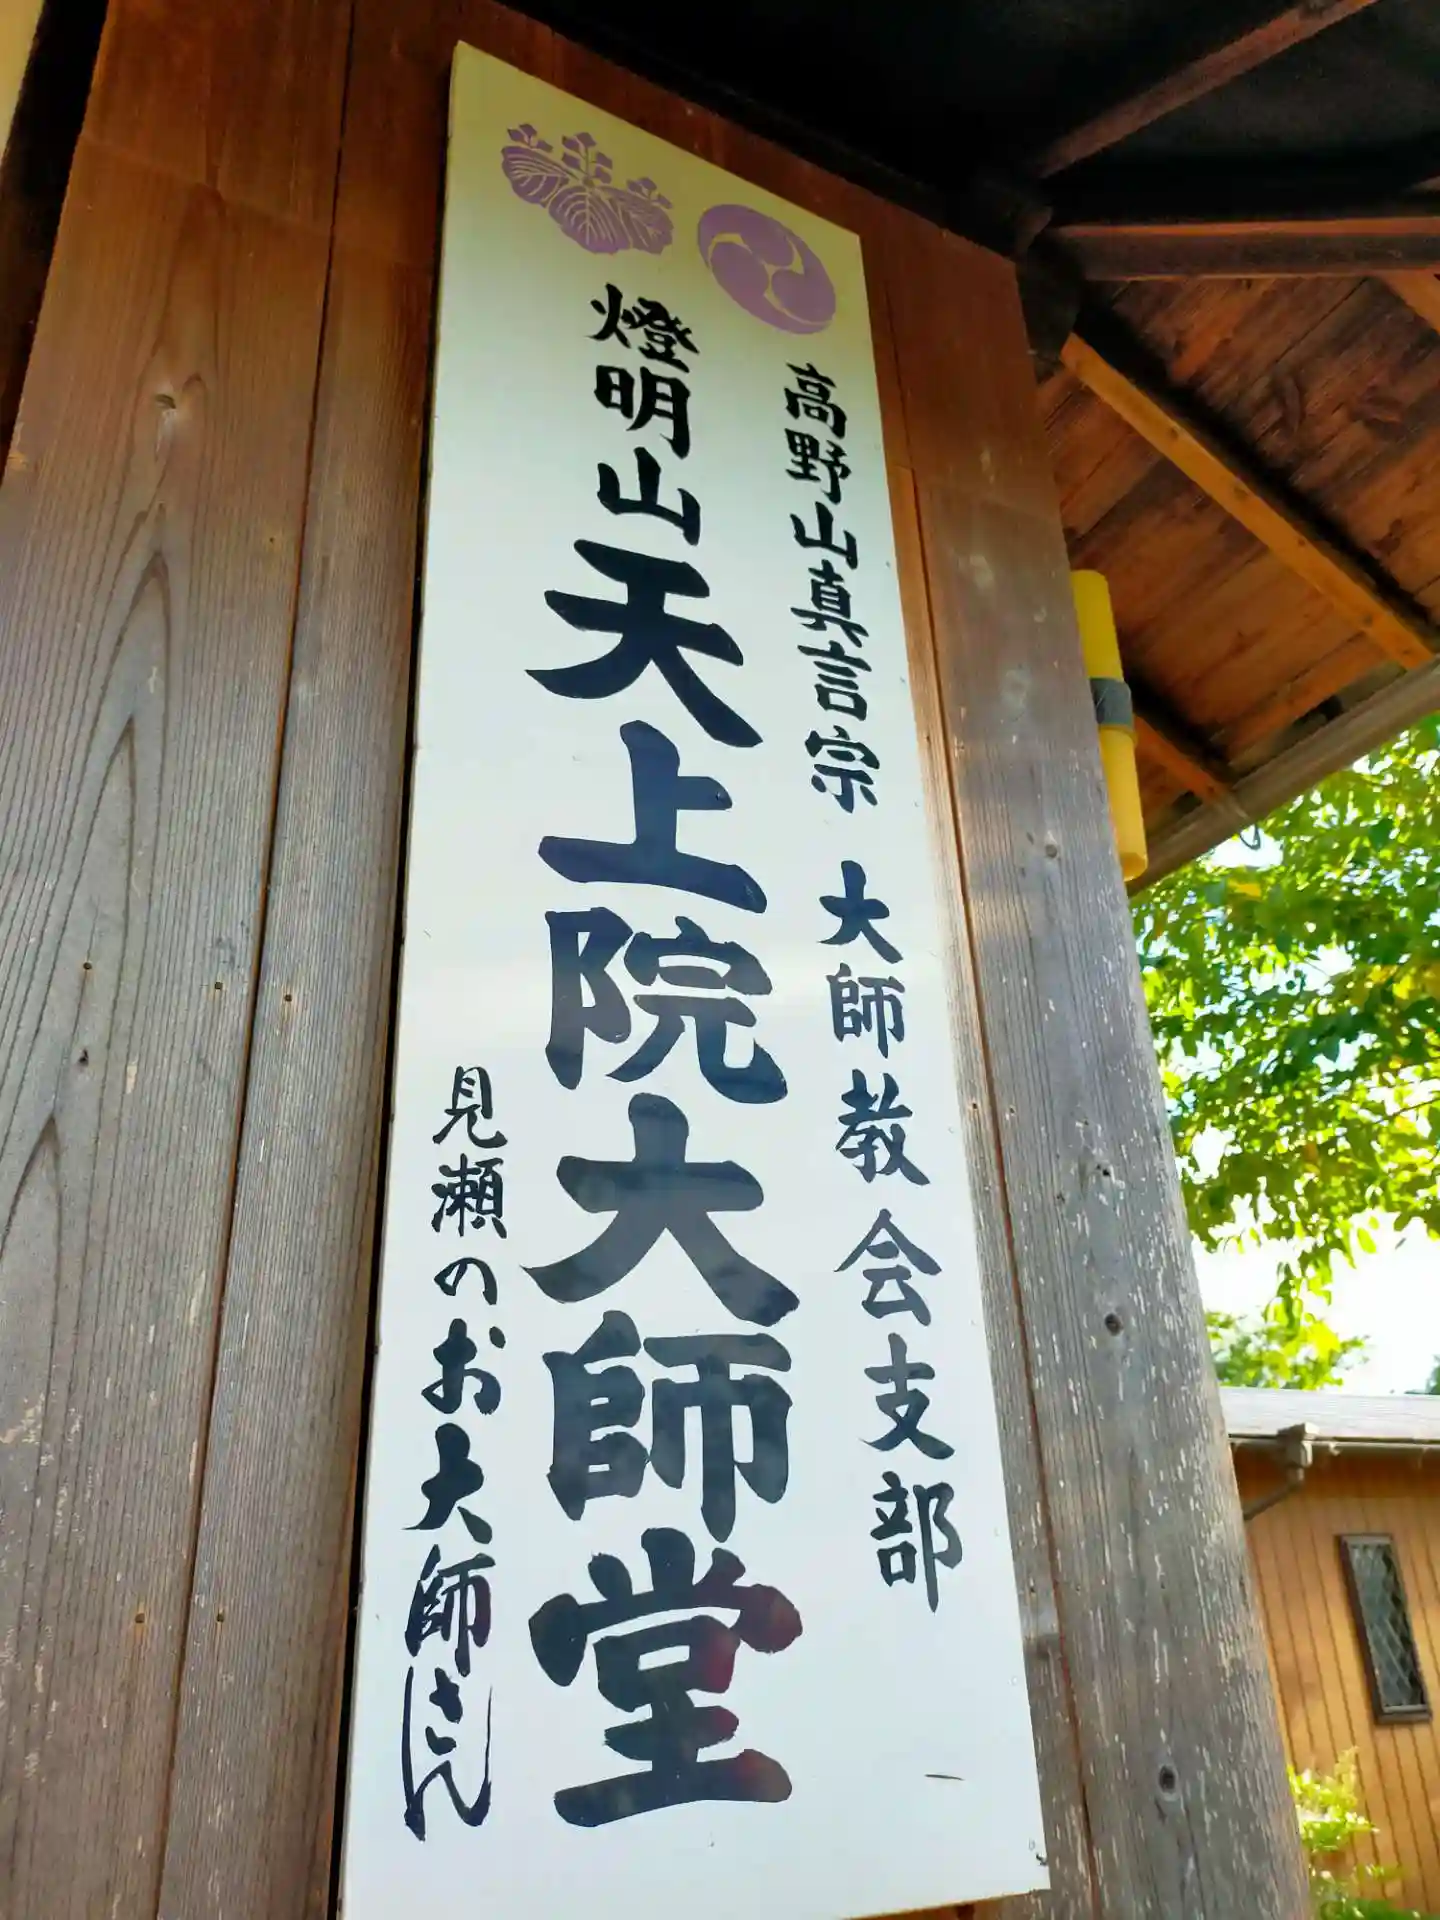 高野山真言宗 大師教会支部
燈明山天上院大師堂
見瀬のお大師さん